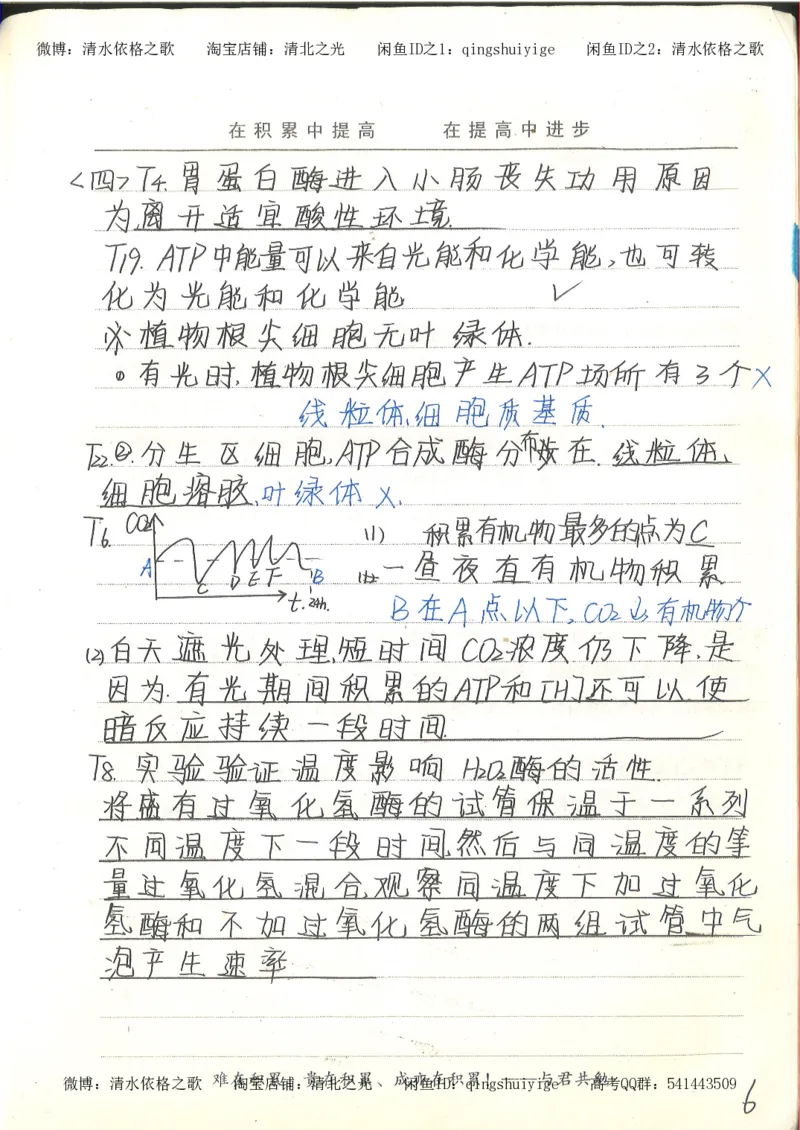 微博：清水依格之歌 淘宝店铺：清北之光 闲鱼ID之1：qingshuiyige 闲鱼ID之2：清水依格之歌
在积累中提高 在提高中进步
<四>T4. 胃蛋白酶进入小肠丧失功用原因
为离开适宜酸性环境.
T19. ATP中能量可以来自光能和化学能,也可转
化为光能和化学能 ✓
※植物根尖细胞无叶绿体.
有光时,植物根尖细胞产生ATP场所有3个 X
线粒体,细胞质基质.
T22.②.分生区细胞,ATP合成酶分布在.线粒体、
细胞溶胶,叶绿体X.
T6. CO2 (1) 积累有机物最多的点为C
A C D E F B 一昼夜有机物积累
t. 24h.
B在A点以下,CO2↓,有机物个
(2)白天遮光处理,短时间CO2浓度仍下降,是
因为.有光期间积累的ATP和[H]还可以使
暗反应持续一段时间.
T8. 实验验证温度影响H2O2酶的活性.
将盛有过氧化氢酶的试管保温于一系列
不同温度下一段时间,然后与同温度的等
量过氧化氢混合,观察同温度下加过氧化
氢酶和不加过氧化氢酶的两组试管中气
泡产生速率
难在积累、贵在积累、成功在积累！——与君共勉
微博：清水依格之歌 淘宝店铺：清北之光 闲鱼ID：qingshuiyige 高考QQ群：541443509
6